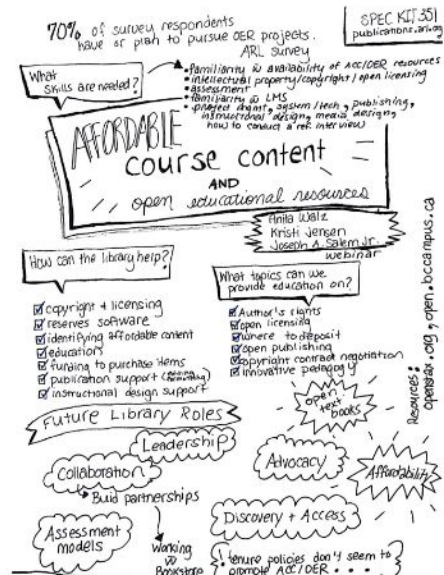 70% of survey respondents
have or plan to pursue OER projects.
ARL survey
SPEC KIT 351
publications.arl.org
What
skills are needed?
• familiarity w availability of ACC/OER resources
• intellectual property/copyright/open licensing
• assessment
• familiarity w LMS
• project mgmt, system/tech, publishing,
instructional design, media design,
how to conduct a ref interview
AFFORDABLE
course content
AND
open educational resources
Anita Walz
Kristi Jensen
Joseph A. Salem Jr.
webinar
How can the library help?
copyright + licensing
reserves software
identifying affordable content
education
funding to purchase items
publication support
instructional design support
What topics can we
provide education on?
Author's rights
open licensing
where to deposit
open publishing
copyright contract negotiation
innovative pedagogy
Resources:
openstax.org, open.bccampus.ca
Future Library Roles
Leadership
Collaboration
Build partnerships
Assessment
models
Working
w
Bookstore
open
text
books
Advocacy
Affordability
Discovery + Access
! tenure policies don't seem to
promote ACC/OER...